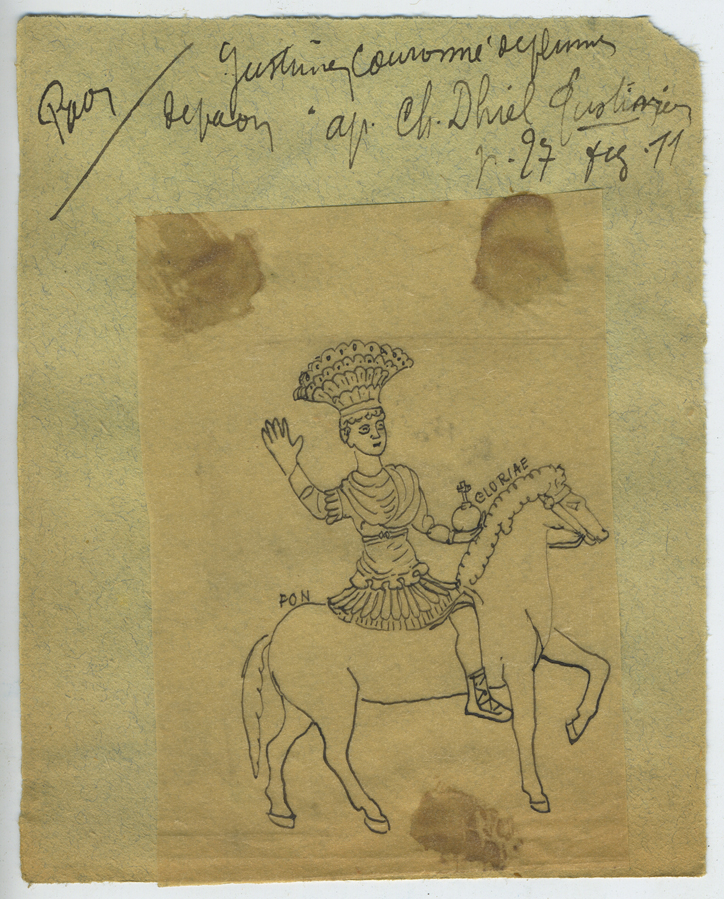 Justinien Couronné de plumes
Paon / de paon " ap. Ch. Dhiel Justinien
p. 27 fig. 11
GLORIAE
FON